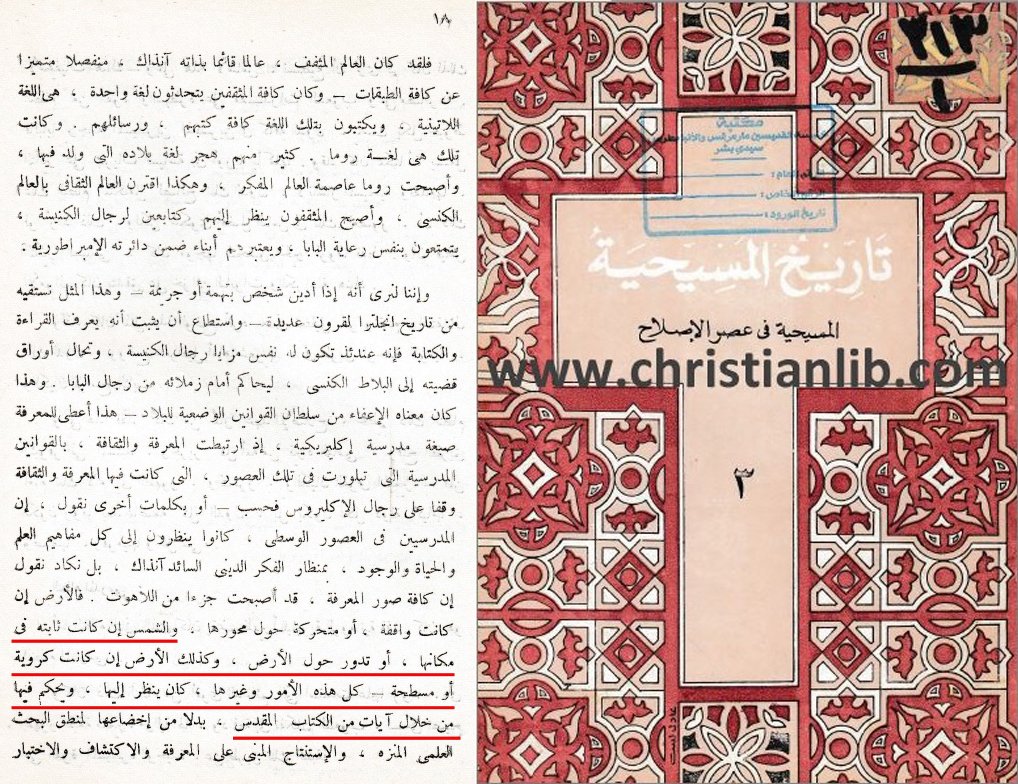 ١٨
فلقد كان العالم المثقف ، عالما قائما بذاته آنذاك ، منفصلا متميزا
عن كافة الطبقات – وكان كافة المثقفين يتحدثون لغة واحدة ، هى اللغة
اللاتينية ، ويكتبون بتلك اللغة كافة كتبهم ، ورسائلهم . وكانت
تلك هى لغة روما . كثير منهم هجر لغة بلاده التى ولد فيها ،
وأصبحت روما عاصمة العالم المفكر ، وهكذا اقترن العالم الثقافى بالعالم
الكنسى ، وأصبح المثقفون ينظر إليهم كتابعين لرجال الكنيسة ،
يتمتعون بنفس رعاية البابا ، ويعتبرهم أبناء ضمن دائرته الإمبراطورية .
وإننا لنرى أنه إذا أدين شخص بتهمة أو جريمة – وهذا المثل نستقيه
من تاريخ انجلترا لقرون عديدة – واستطاع أن يثبت أنه يعرف القراءة
والكتابة فإنه عندئذ تكون له نفس مزايا رجال الكنيسة ، وتحال أوراق
قضيته إلى البلاط الكنسى ، ليحاكم أمام زملائه من رجال البابا . وهذا
كان معناه الإعفاء من سلطان القوانين الوضعية للبلاد – هذا أعطى للمعرفة
صبغة مدرسية إكليريكية ، إذ ارتبطت المعرفة والثقافة ، بالقوانين
المدرسية التى تبلورت فى تلك العصور ، التى كانت فيها المعرفة والثقافة
وقفا على رجال الإكليروس فحسب – أو بكلمات أخرى نقول ، إن
المدرسين فى العصور الوسطى ، كانوا ينظرون إلى كل مفاهيم العلم
والحياة والوجود ، بمنظار الفكر الدينى السائد آنذاك ، بل نكاد نقول
إن كافة صور المعرفة ، قد أصبحت جزءا من اللاهوت . فالأرض إن
كانت واقفة ، أو متحركة حول محورها ، والشمس إن كانت ثابته فى
مكانها ، أو تدور حول الأرض ، وكذلك الأرض إن كانت كروية
أو مسطحة – كل هذه الأمور وغيرها ، كان ينظر إليها ، ويحكم فيها
من خلال آيات من الكتاب المقدس ، بدلا من إخضاعها لمنطق البحث
العلمى المنزه ، والإستنتاج المبنى على المعرفة والاكتشاف والاختبار
٢١٣
١
مكتبة
القديسين مارمرقس
سيدى بشر
تاريخ الورود :
تاريخ المسيحية
المسيحية فى عصر الإصلاح
www.christianlib.com
٣